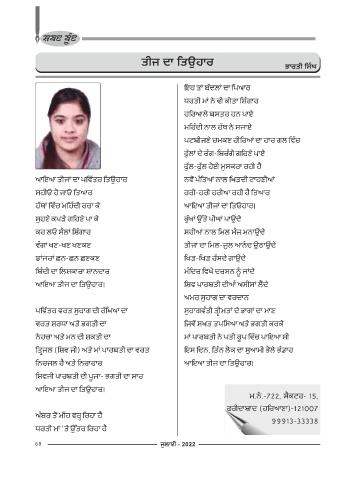 ਸ਼ਬਦ ਬੂੰਦ
ਤੀਜ ਦਾ ਤਿਉਹਾਰ
ਭਾਰਤੀ ਸਿੰਘ
ਆਇਆ ਤੀਜਾਂ ਦਾ ਪਵਿੱਤਰ ਤਿਉਹਾਰ
ਸਹੀਓ ਹੋ ਜਾਓ ਤਿਆਰ
ਹੱਥਾਂ ਵਿੱਚ ਮਹਿੰਦੀ ਰਚਾ ਕੇ
ਸੁਹਣੇ ਕਪੜੇ ਗਹਿਣੇ ਪਾ ਕੇ
ਕਰ ਲਓ ਸੋਲਾਂ ਸ਼ਿੰਗਾਰ
ਵੰਗਾਂ ਖਣ-ਖਣ ਖਣਕਣ
ਝਾਂਜਰਾਂ ਛਨ-ਛਨ ਛਣਕਣ
ਬਿੰਦੀ ਦਾ ਲਿਸ਼ਕਾਰਾ ਸ਼ਾਨਦਾਰ
ਆਇਆ ਤੀਜ ਦਾ ਤਿਉਹਾਰ।
ਪਵਿੱਤਰ ਵਰਤ ਸੁਹਾਗ ਦੀ ਰੱਖਿਆ ਦਾ
ਵਰਤ ਸ਼ਰਧਾ ਅਤੇ ਭਗਤੀ ਦਾ
ਨੇਹਚਾ ਅਤੇ ਮਨ ਦੀ ਸ਼ਕਤੀ ਦਾ
ਤ੍ਰਿਜਲ (ਸ਼ਿਵ ਜੀ) ਅਤੇ ਮਾਂ ਪਾਰਬਤੀ ਦਾ ਵਰਤ
ਨਿਰਜਲ ਹੈ ਅਤੇ ਨਿਰਾਹਾਰ
ਸ਼ਿਵਜੀ ਪਾਰਬਤੀ ਦੀ ਪੂਜਾ- ਭਗਤੀ ਦਾ ਸਾਰ
ਆਇਆ ਤੀਜ ਦਾ ਤਿਉਹਾਰ।
ਅੰਬਰ ਤੋਂ ਮੀਂਹ ਵਰ੍ਹ ਰਿਹਾ ਹੈ
ਧਰਤੀ ਮਾਂ 'ਤੇ ਉੱਤਰ ਰਿਹਾ ਹੈ
ਇਹ ਤਾਂ ਬੱਦਲਾਂ ਦਾ ਪਿਆਰ
ਧਰਤੀ ਮਾਂ ਨੇ ਵੀ ਕੀਤਾ ਸ਼ਿੰਗਾਰ
ਹਰਿਆਲੇ ਬਸਤਰ ਹਨ ਪਾਏ
ਮਹਿੰਦੀ ਨਾਲ ਹੱਥ ਨੇ ਸਜਾਏ
ਪਟਬੀਜਣੇ ਚਮਕਣ ਹੀਰਿਆਂ ਦਾ ਹਾਰ ਗਲ ਵਿੱਚ
ਫੁੱਲਾਂ ਦੇ ਰੰਗ-ਬਿਰੰਗੇ ਗਹਿਣੇ ਪਾਏ
ਫੁੱਲ-ਫੁੱਲ ਹੋਏ ਮੁਸਕਰਾ ਰਹੀ ਹੈ
ਨਵੇਂ ਪੱਤਿਆਂ ਨਾਲ ਖਿੜਦੀ ਟਾਹਣੀਆਂ
ਹਰੀ-ਹਰੀ ਹਰੀਆ ਰਹੀ ਹੈ ਤਿਆਰ
ਆਇਆ ਤੀਜਾਂ ਦਾ ਤਿਓਹਾਰ।
ਰੁੱਖਾਂ ਉੱਤੇ ਪੀਂਘਾਂ ਪਾਉਂਦੇ
ਸਹੀਆਂ ਨਾਲ ਮਿਲ ਮੌਜ ਮਨਾਉਂਦੇ
ਤੀਜਾਂ ਦਾ ਮਿਲ-ਜੁਲ ਆਨੰਦ ਉਠਾਉਂਦੇ
ਖਿੜ-ਖਿੜ ਹੱਸਦੇ ਗਾਉਂਦੇ
ਮੰਦਿਰ ਵਿਖੇ ਦਰਸ਼ਨ ਨੂੰ ਜਾਂਦੇ
ਸ਼ਿਵ ਪਾਰਬਤੀ ਦੀਆਂ ਅਸੀਸਾਂ ਲੈਂਦੇ
ਅਮਰ ਸੁਹਾਗ ਦਾ ਵਰਦਾਨ
ਸੁਹਾਗਵੰਤੀ ਤ੍ਰੀਮਤਾਂ ਦੇ ਭਾਗਾਂ ਦਾ ਮਾਣ
ਜਿਵੇਂ ਸਖ਼ਤ ਤਪੱਸਿਆ ਅਤੇ ਭਗਤੀ ਕਰਕੇ
ਮਾਂ ਪਾਰਬਤੀ ਨੇ ਪਤੀ ਰੂਪ ਵਿੱਚ ਪਾਇਆ ਸੀ
ਇਸ ਦਿਨ, ਤਿੰਨ ਲੋਕ ਦਾ ਸੁਆਮੀ ਭੋਲੇ ਭੰਡਾਰ
ਆਇਆ ਤੀਜ ਦਾ ਤਿਉਹਾਰ।
ਮ.ਨੰ.-722, ਸੈਕਟਰ- 15,
ਫ਼ਰੀਦਾਬਾਦ (ਹਰਿਆਣਾ)-121007
99913-33338
68
ਜੁਲਾਈ - 2022